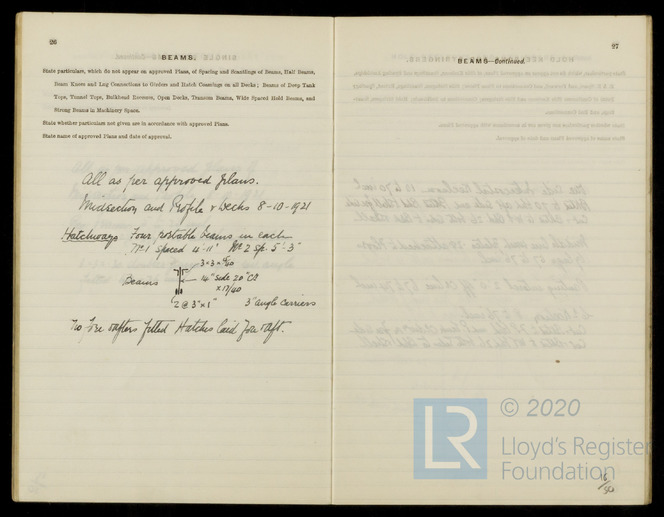 26
BEAMS.
State particulars, which do not appear on approved Plans, of Spacing and Scantlings of Beams, Half Beams,
Beam Knees and Lug Connections to Girders and Hatch Coamings on all Decks; Beams of Deep Tank
Tops, Tunnel Tops, Bulkhead Recesses, Open Decks, Transom Beams, Wide Spaced Hold Beams, and
Strong Beams in Machinery Space.
State whether particulars not given are in accordance with approved Plans.
State name of approved Plans and date of approval.
All as per approved plans.
Midsection and Profile & Decks 8-10-1921
Hatchways Four portable beams in each
No 1 spaced 4'-11" No 2 sp. 5'-3"
3×3×
Beams 14" side 20" CL
× 17/40
2 @ 3"×1" 3" angle carriers
No fore & afters fitted Hatches laid fore & aft.
27
BEAMS—Continued.
© 2020
LR
Lloyd's Register
Foundation